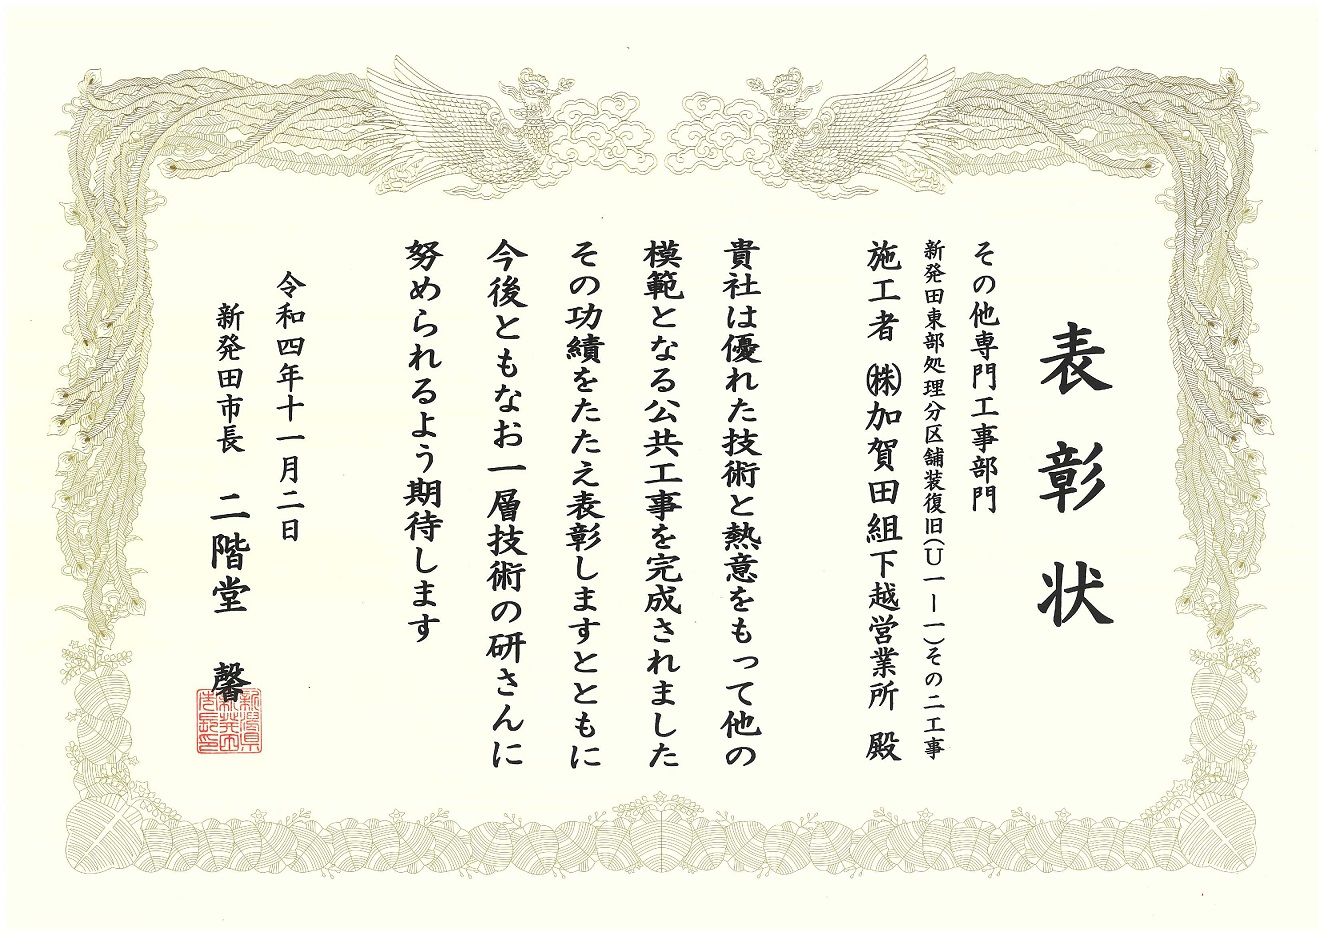 表彰状
その他専門工事部門
新発田東部処理分区舗装復旧(U一ー一)その二工事
施工者 ㈱加賀田組下越営業所 殿
貴社は優れた技術と熱意をもって他の
模範となる公共工事を完成されました
その功績をたたえ表彰しますとともに
今後ともなお一層技術の研さんに
努められるよう期待します
令和四年十一月二日
新発田市長 二階堂 馨
新潟県
新発田
市長印